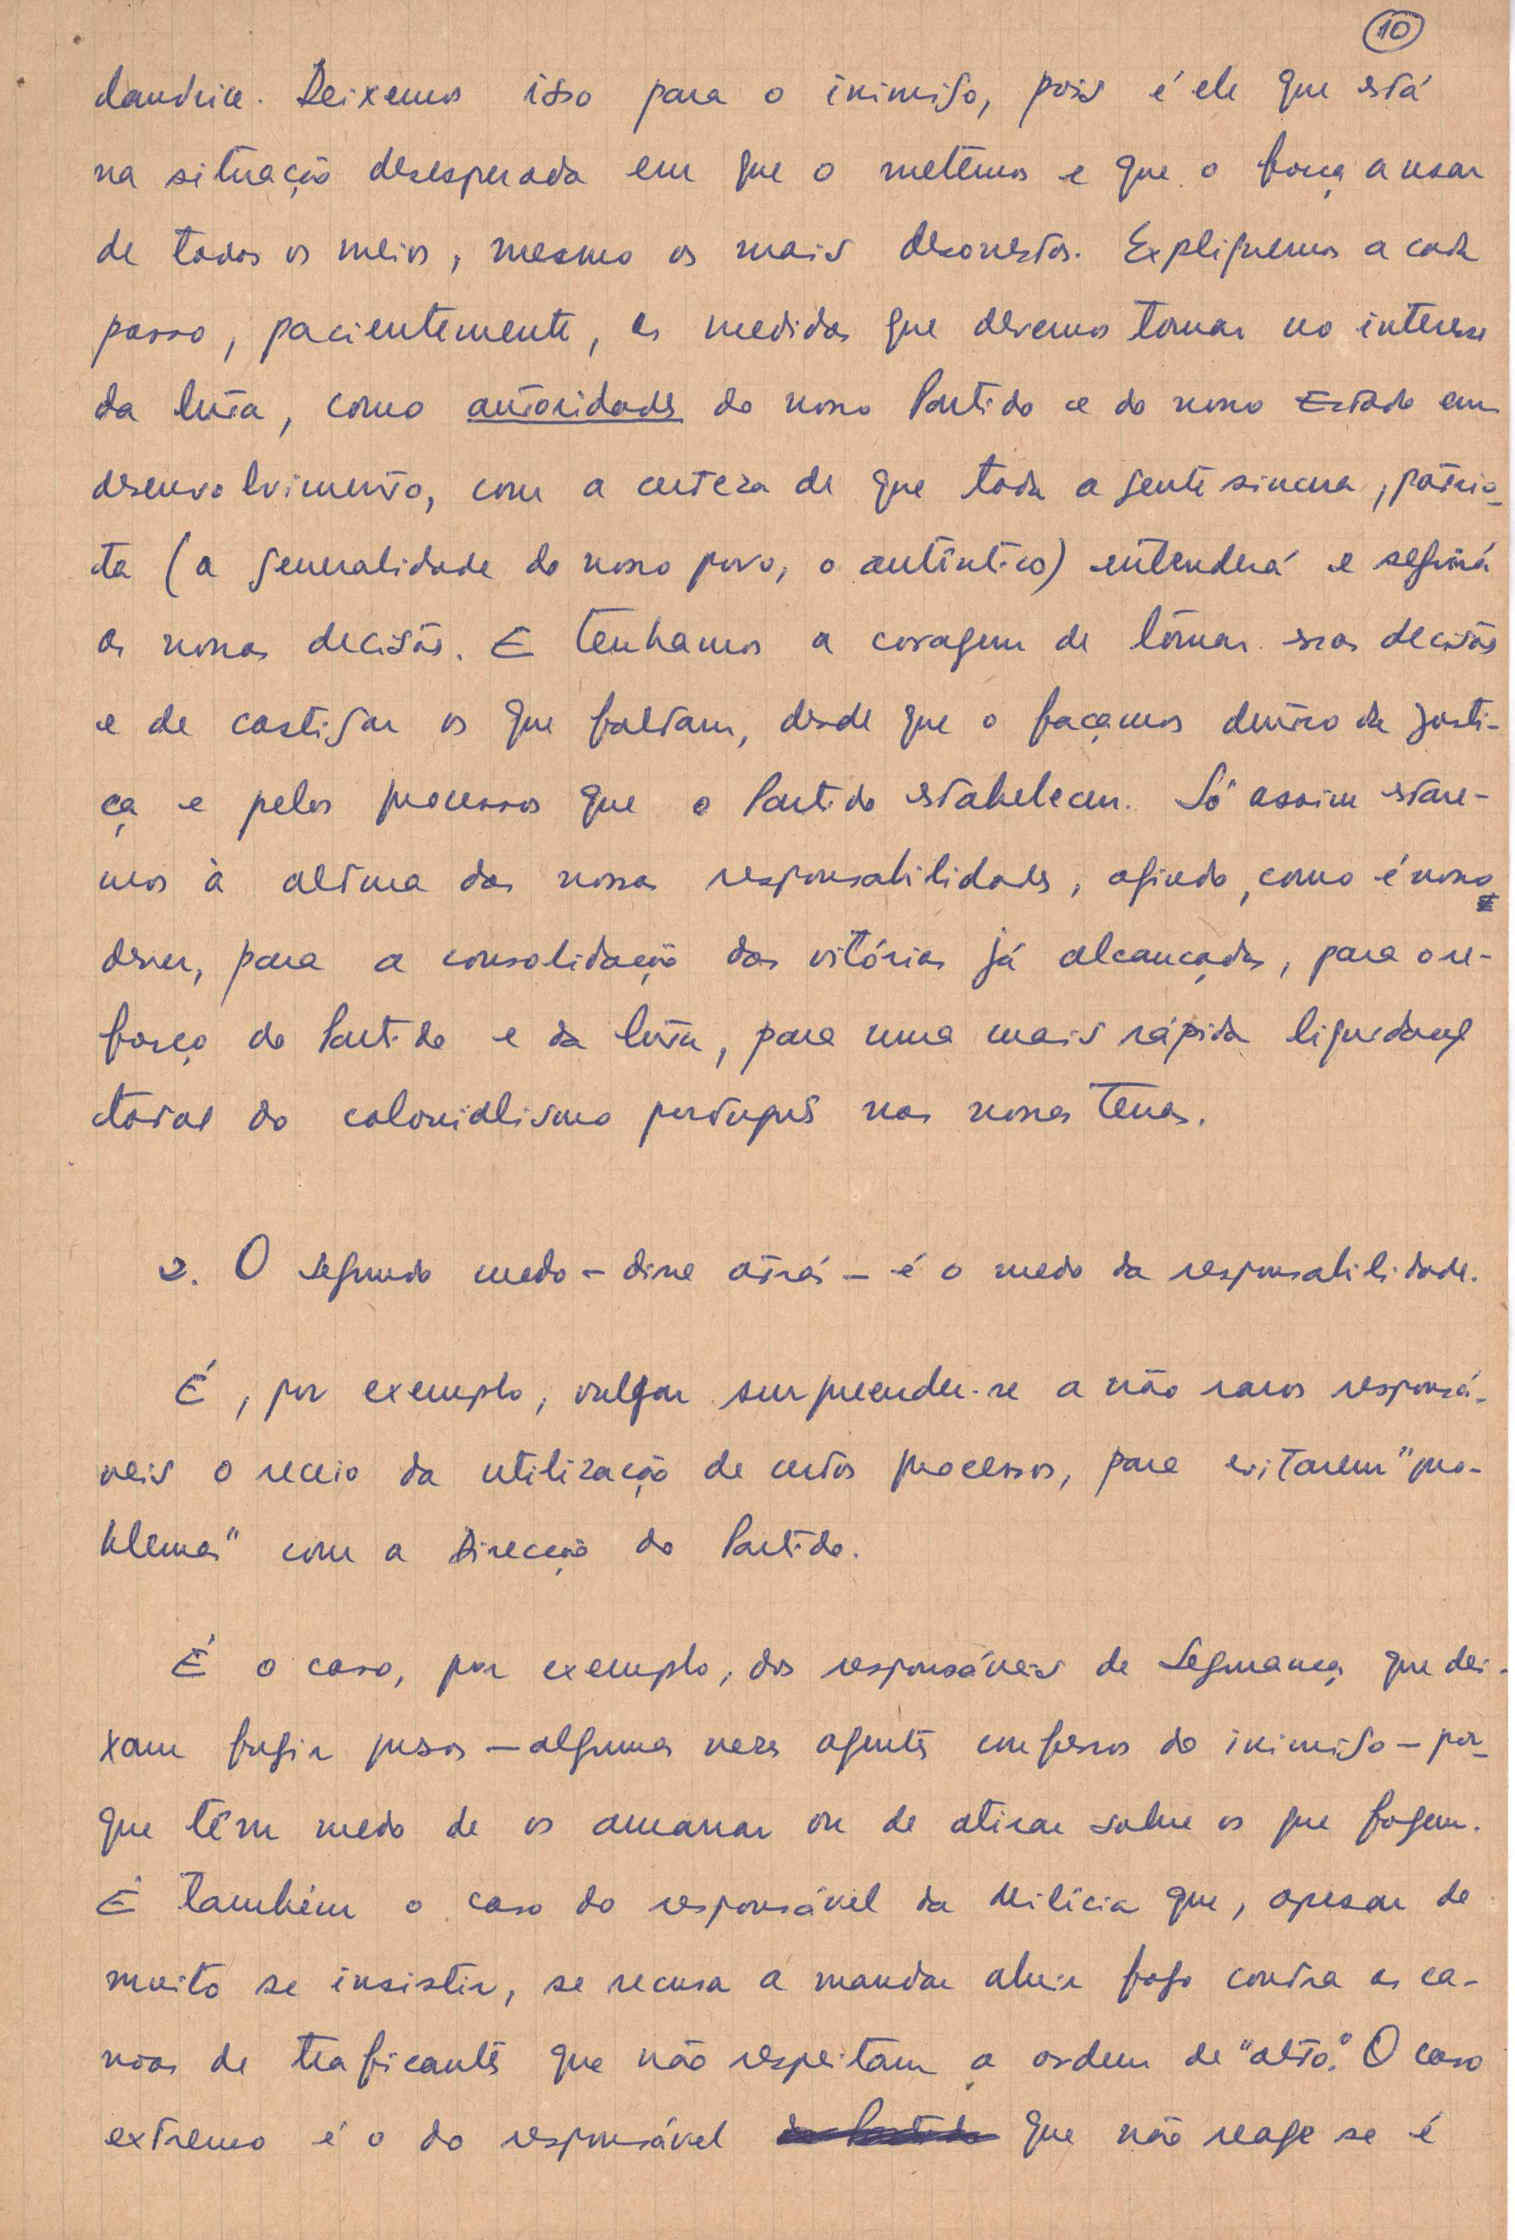 10
landrice. Deixemos isso para o inimigo, pois é ele que está
na situação desesperada em que o metemos e que o força a usar
de todos os meios, mesmo os mais desonestos. Expliquemos a cada
passo, pacientemente, as medidas que devemos tomar no interesse
da luta, como autoridades do nosso Partido e do nosso Estado em
desenvolvimento, com a certeza de que toda a gente sincera, patrio-
ta (a generalidade do nosso povo, o autêntico) entenderá e seguirá
as nossas decisões. E tenhamos a coragem de tomar essas decisões
e de castigar os que faltam, desde que o façamos dentro da justi-
ça e pelos processos que o Partido estabeleceu. Só assim estare-
mos à altura das nossas responsabilidades, agindo, como é nosso
dever, para a consolidação das vitórias já alcançadas, para o re-
forço do Partido e da luta, para uma mais rápida liquidação
total do colonialismo português nas nossas terras.
2. O segundo medo - disse atrás - é o medo da responsabilidade.
É, por exemplo, vulgar surpreender-se a não raros responsá-
veis o receio da utilização de certos processos, para evitarem "pro-
blemas" com a Direcção do Partido.
É o caso, por exemplo, dos responsáveis de Segurança que dei-
xam fugir presos — algumas vezes agentes confessos do inimigo — por-
que têm medo de os amarrar ou de atirar sobre os que fogem.
É também o caso do responsável da milícia que, apesar de
muito se insistir, se recusa a mandar abrir fogo contra as ca-
noas de traficantes que não respeitam a ordem de "alto". O caso
extremo é o do responsável do Partido que não reage se é